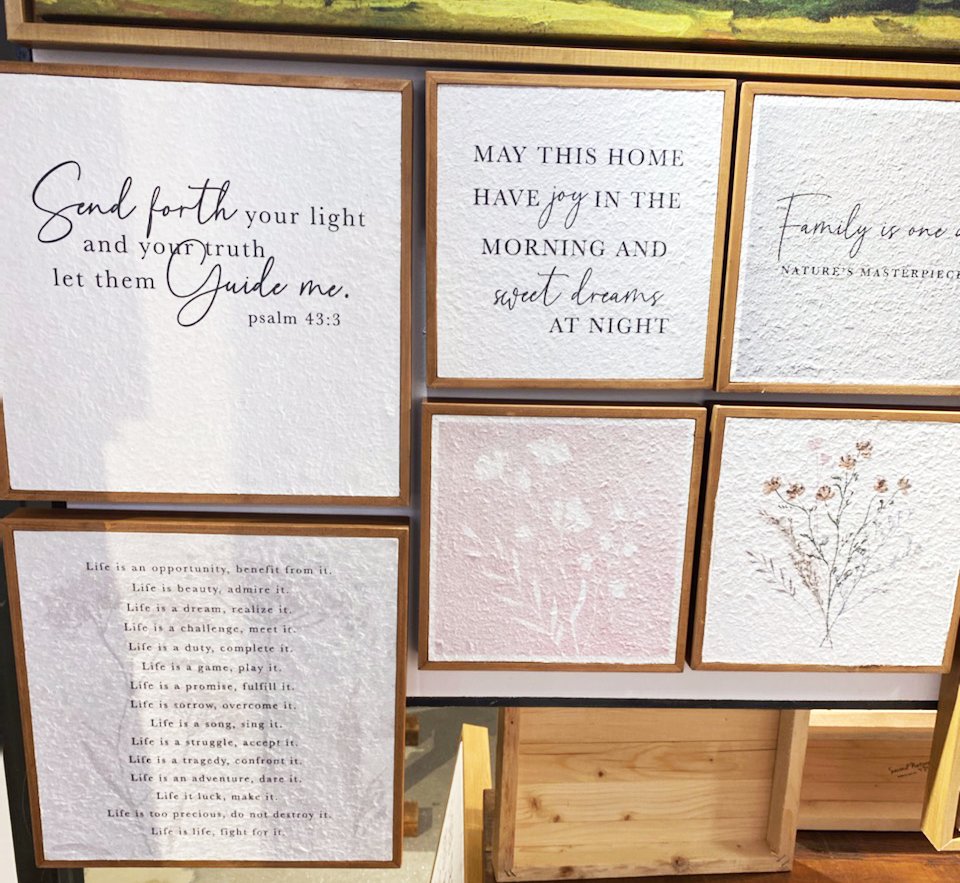 Send forth your light
and your truth
let them Guide me.
psalm 43:3
MAY THIS HOME
HAVE joy IN THE
MORNING AND
sweet dreams
AT NIGHT
Family is one
NATURE'S MASTERPIECE
Life is an opportunity, benefit from it.
Life is beauty, admire it.
Life is a dream, realize it.
Life is a challenge, meet it.
Life is a duty, complete it.
Life is a game, play it.
Life is a promise, fulfill it.
Life is sorrow, overcome it.
Life is a song, sing it.
Life is a struggle, accept it.
Life is a tragedy, confront it.
Life is an adventure, dare it.
Life it luck, make it.
Life is too precious, do not destroy it.
Life is life, fight for it.